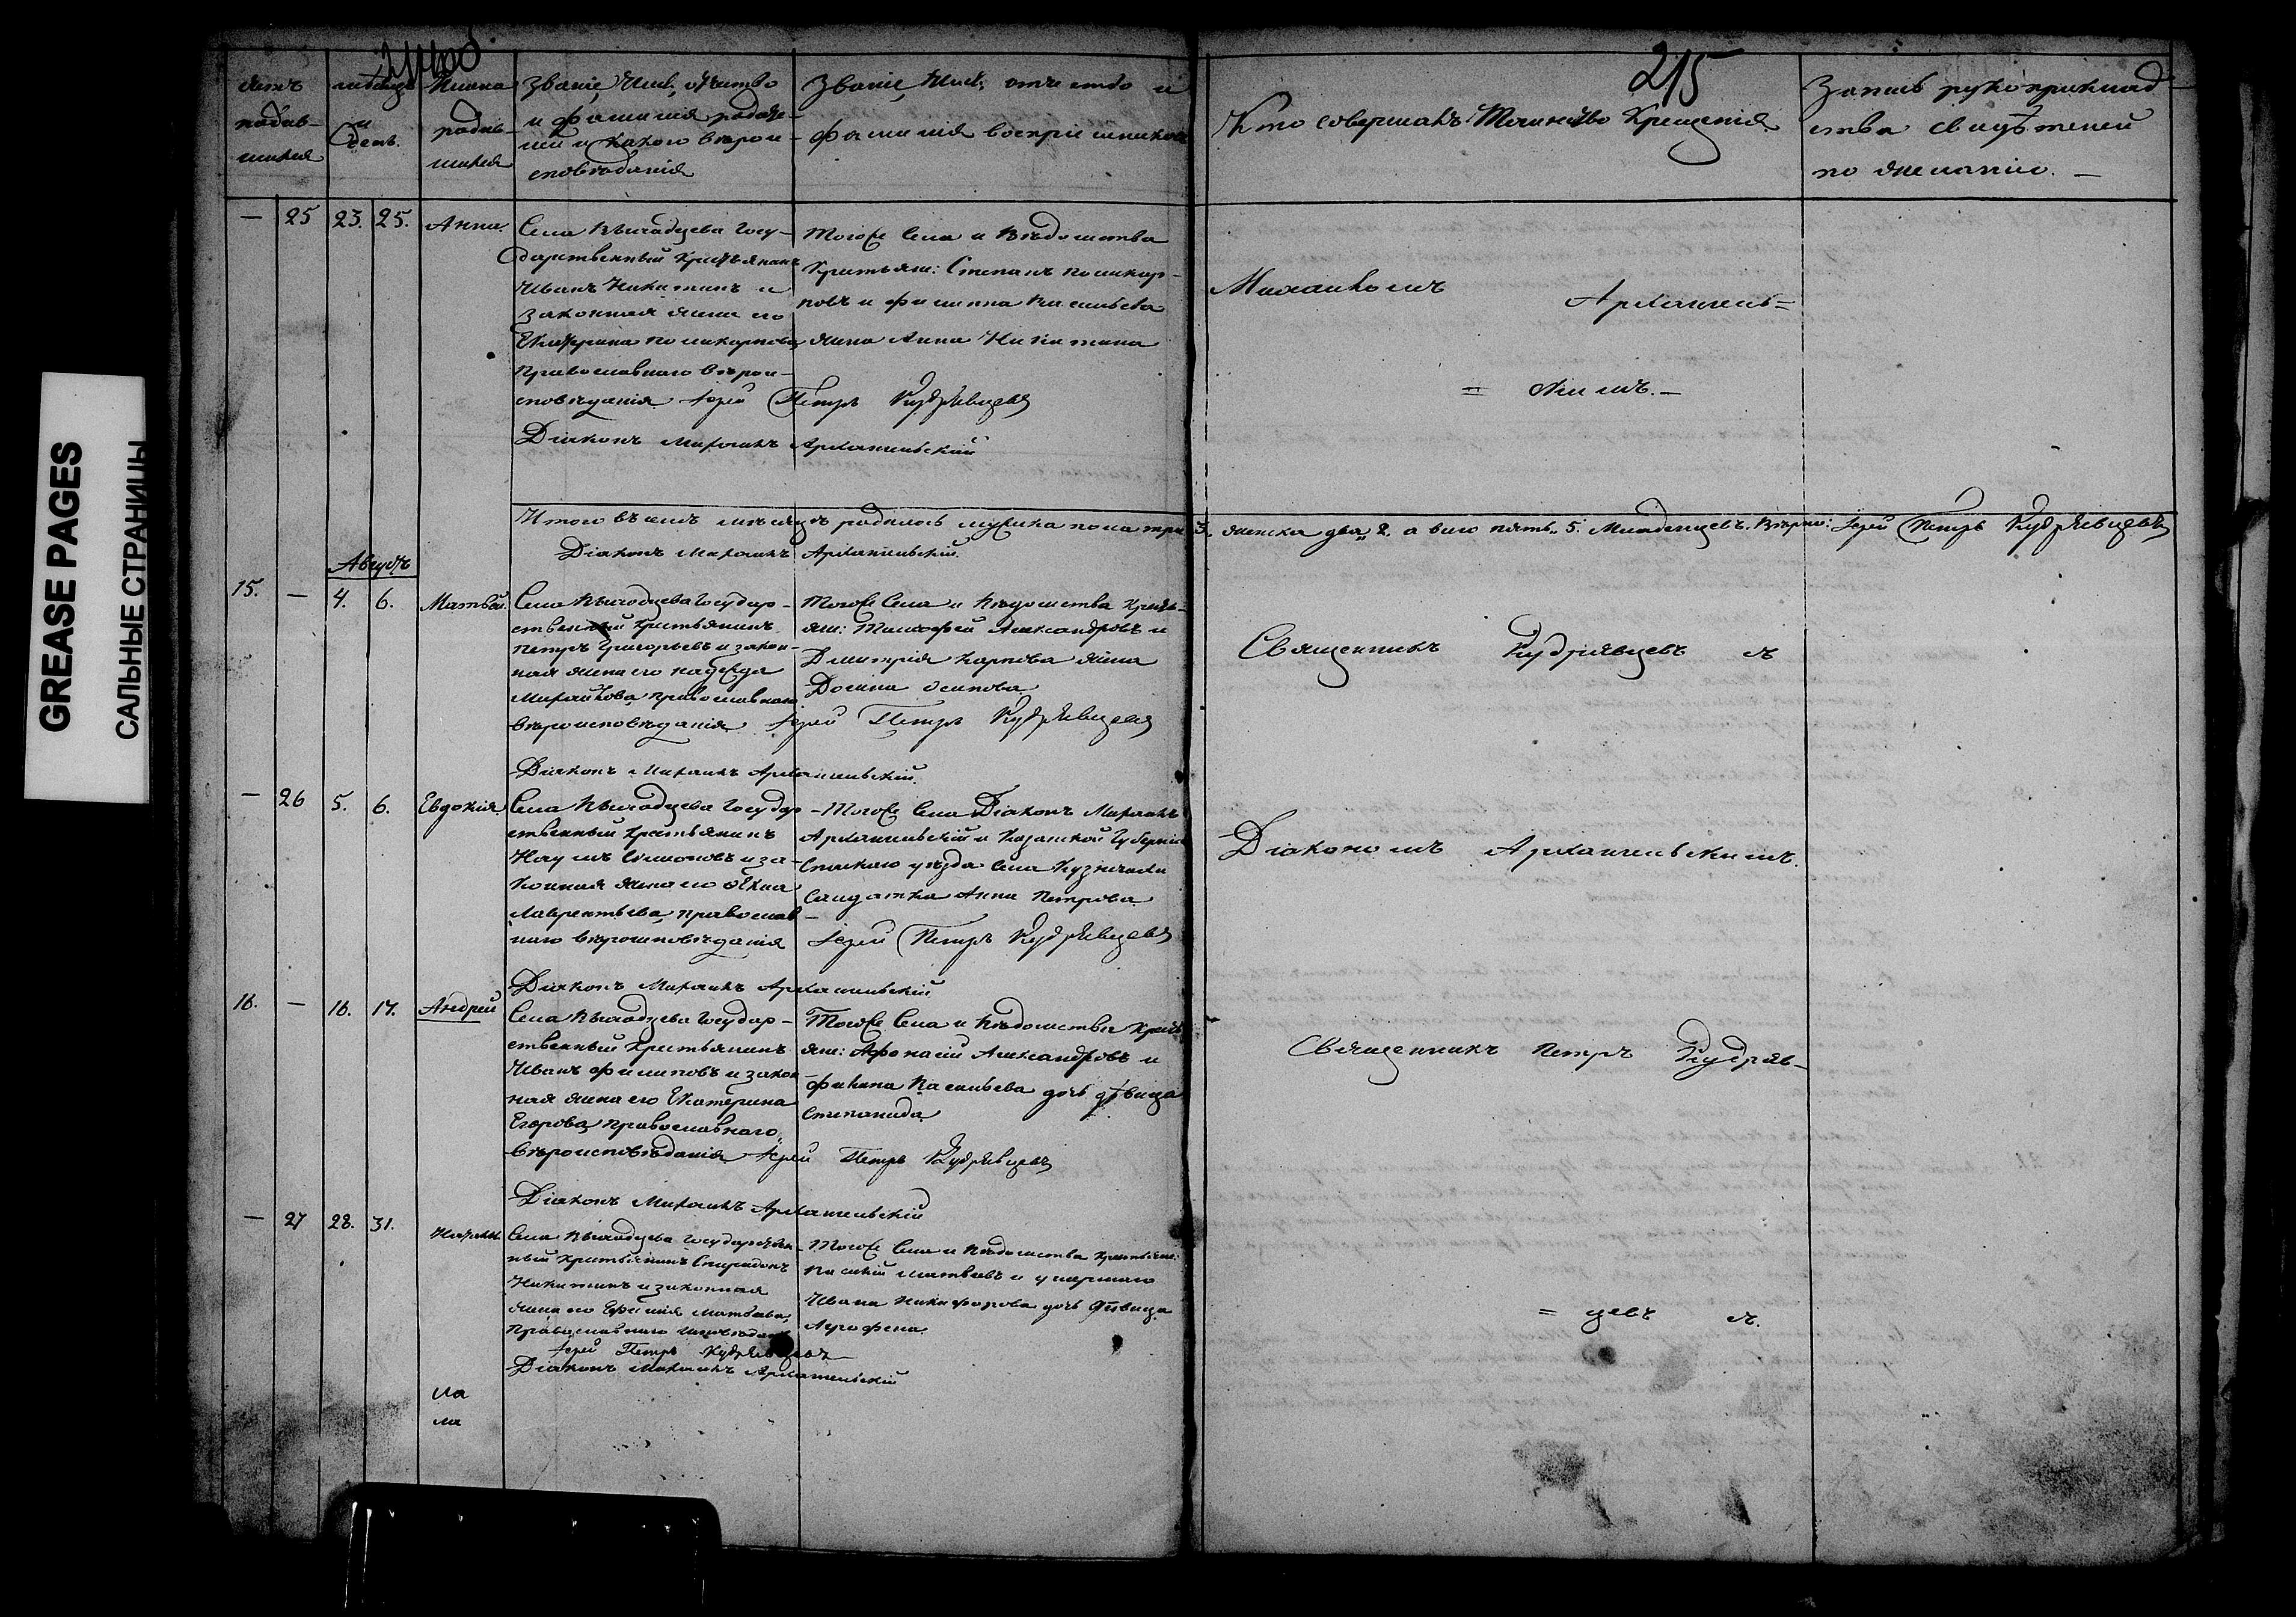 GREASE PAGES
САЛЬНЫЕ СТРАНИЦЫ
215
родив-
шихся
мѣсяцъ
и
день.
Имена
родив-
шихся
Званіе, Имя, отчество
и фамилія родите-
лей и какого вѣрои-
сповѣданія
Званіе, Имя, отчество и
фамилія воспріемниковъ
Кто совершалъ Таинство Крещенія
Запись рукоприклад-
ства свидѣтелей
по желанію. —
— 25 23. 25. Анна.
Села Государственный Крестьянинъ
Иванъ Никитинъ и
законная жена его
Екатерина Поликарпова
Православнаго вѣрои-
сповѣданія Іерей Петръ Кудрявцевъ
Діаконъ Михаилъ Архангельскій
Тогоже Села и Вѣдомства
Крестьяне: Степанъ Поликар-
повъ и Филиппа Васильева
жена Анна Никитина
Михаиломъ Архангель=
= скимъ. —
Итого въ семъ мѣсяцѣ родилось мужеска пола три 3. женска два 2. а всего пять 5. Младенцевъ. Іерей Петръ Кудрявцевъ
Діаконъ Михаилъ Архангельскій.
Августъ
15. — 4. 6. Матвѣй.
Села Государ-
ственный Крестьянинъ
Петръ Григорьевъ и закон-
ная жена его Надежда
Михайлова, православнаго
вѣроисповѣданія Іерей Петръ Кудрявцевъ
Діаконъ Михаилъ Архангельскій.
Тогоже Села и Вѣдомства Крестья-
яне: Тимофей Александровъ и
Дмитрія Карпова жена
Домна Осипова
Священникъ Кудрявцевъ
— 26 5. 6. Евдокія.
Села Государ-
ственный Крестьянинъ
Наумъ Симоновъ и за-
конная жена его
Лаврентьева, православ-
наго вѣроисповѣданія Іерей Петръ Кудрявцевъ
Діаконъ Михаилъ Архангельскій
Тогоже Села Діаконъ Михаилъ
Архангельскій и Казанской Губерніи
Спаскаго уѣзда Села Кузнечихи
Солдатка Анна Петрова
Діакономъ Архангельскимъ.
16. — 16. 17. Андрей
Села Государ-
ственный Крестьянинъ
Иванъ Филиповъ и закон-
ная жена его Екатерина
Егорова, православнаго
вѣроисповѣданія Іерей Петръ Кудрявцевъ
Діаконъ Михаилъ Архангельскій
Тогоже Села и Вѣдомства Крестья-
яне: Афонасій Александровъ и
Васильева дочь дѣвица
Степанида
Священникъ Петръ Кудряв-
— 27 28. 31. Наталья
Села Государствен-
ный Крестьянинъ Спиридонъ
Никитинъ и законная
жена его Матвѣева,
Православнаго
Іерей Петръ Кудрявцевъ
Діаконъ Михаилъ Архангельскій
Тогоже Села и Вѣдомства Крестьяне:
Василій Матвѣевъ и умершаго
Ивана Никифорова дочь дѣвица
Агрофена
= цевъ
ла
ла